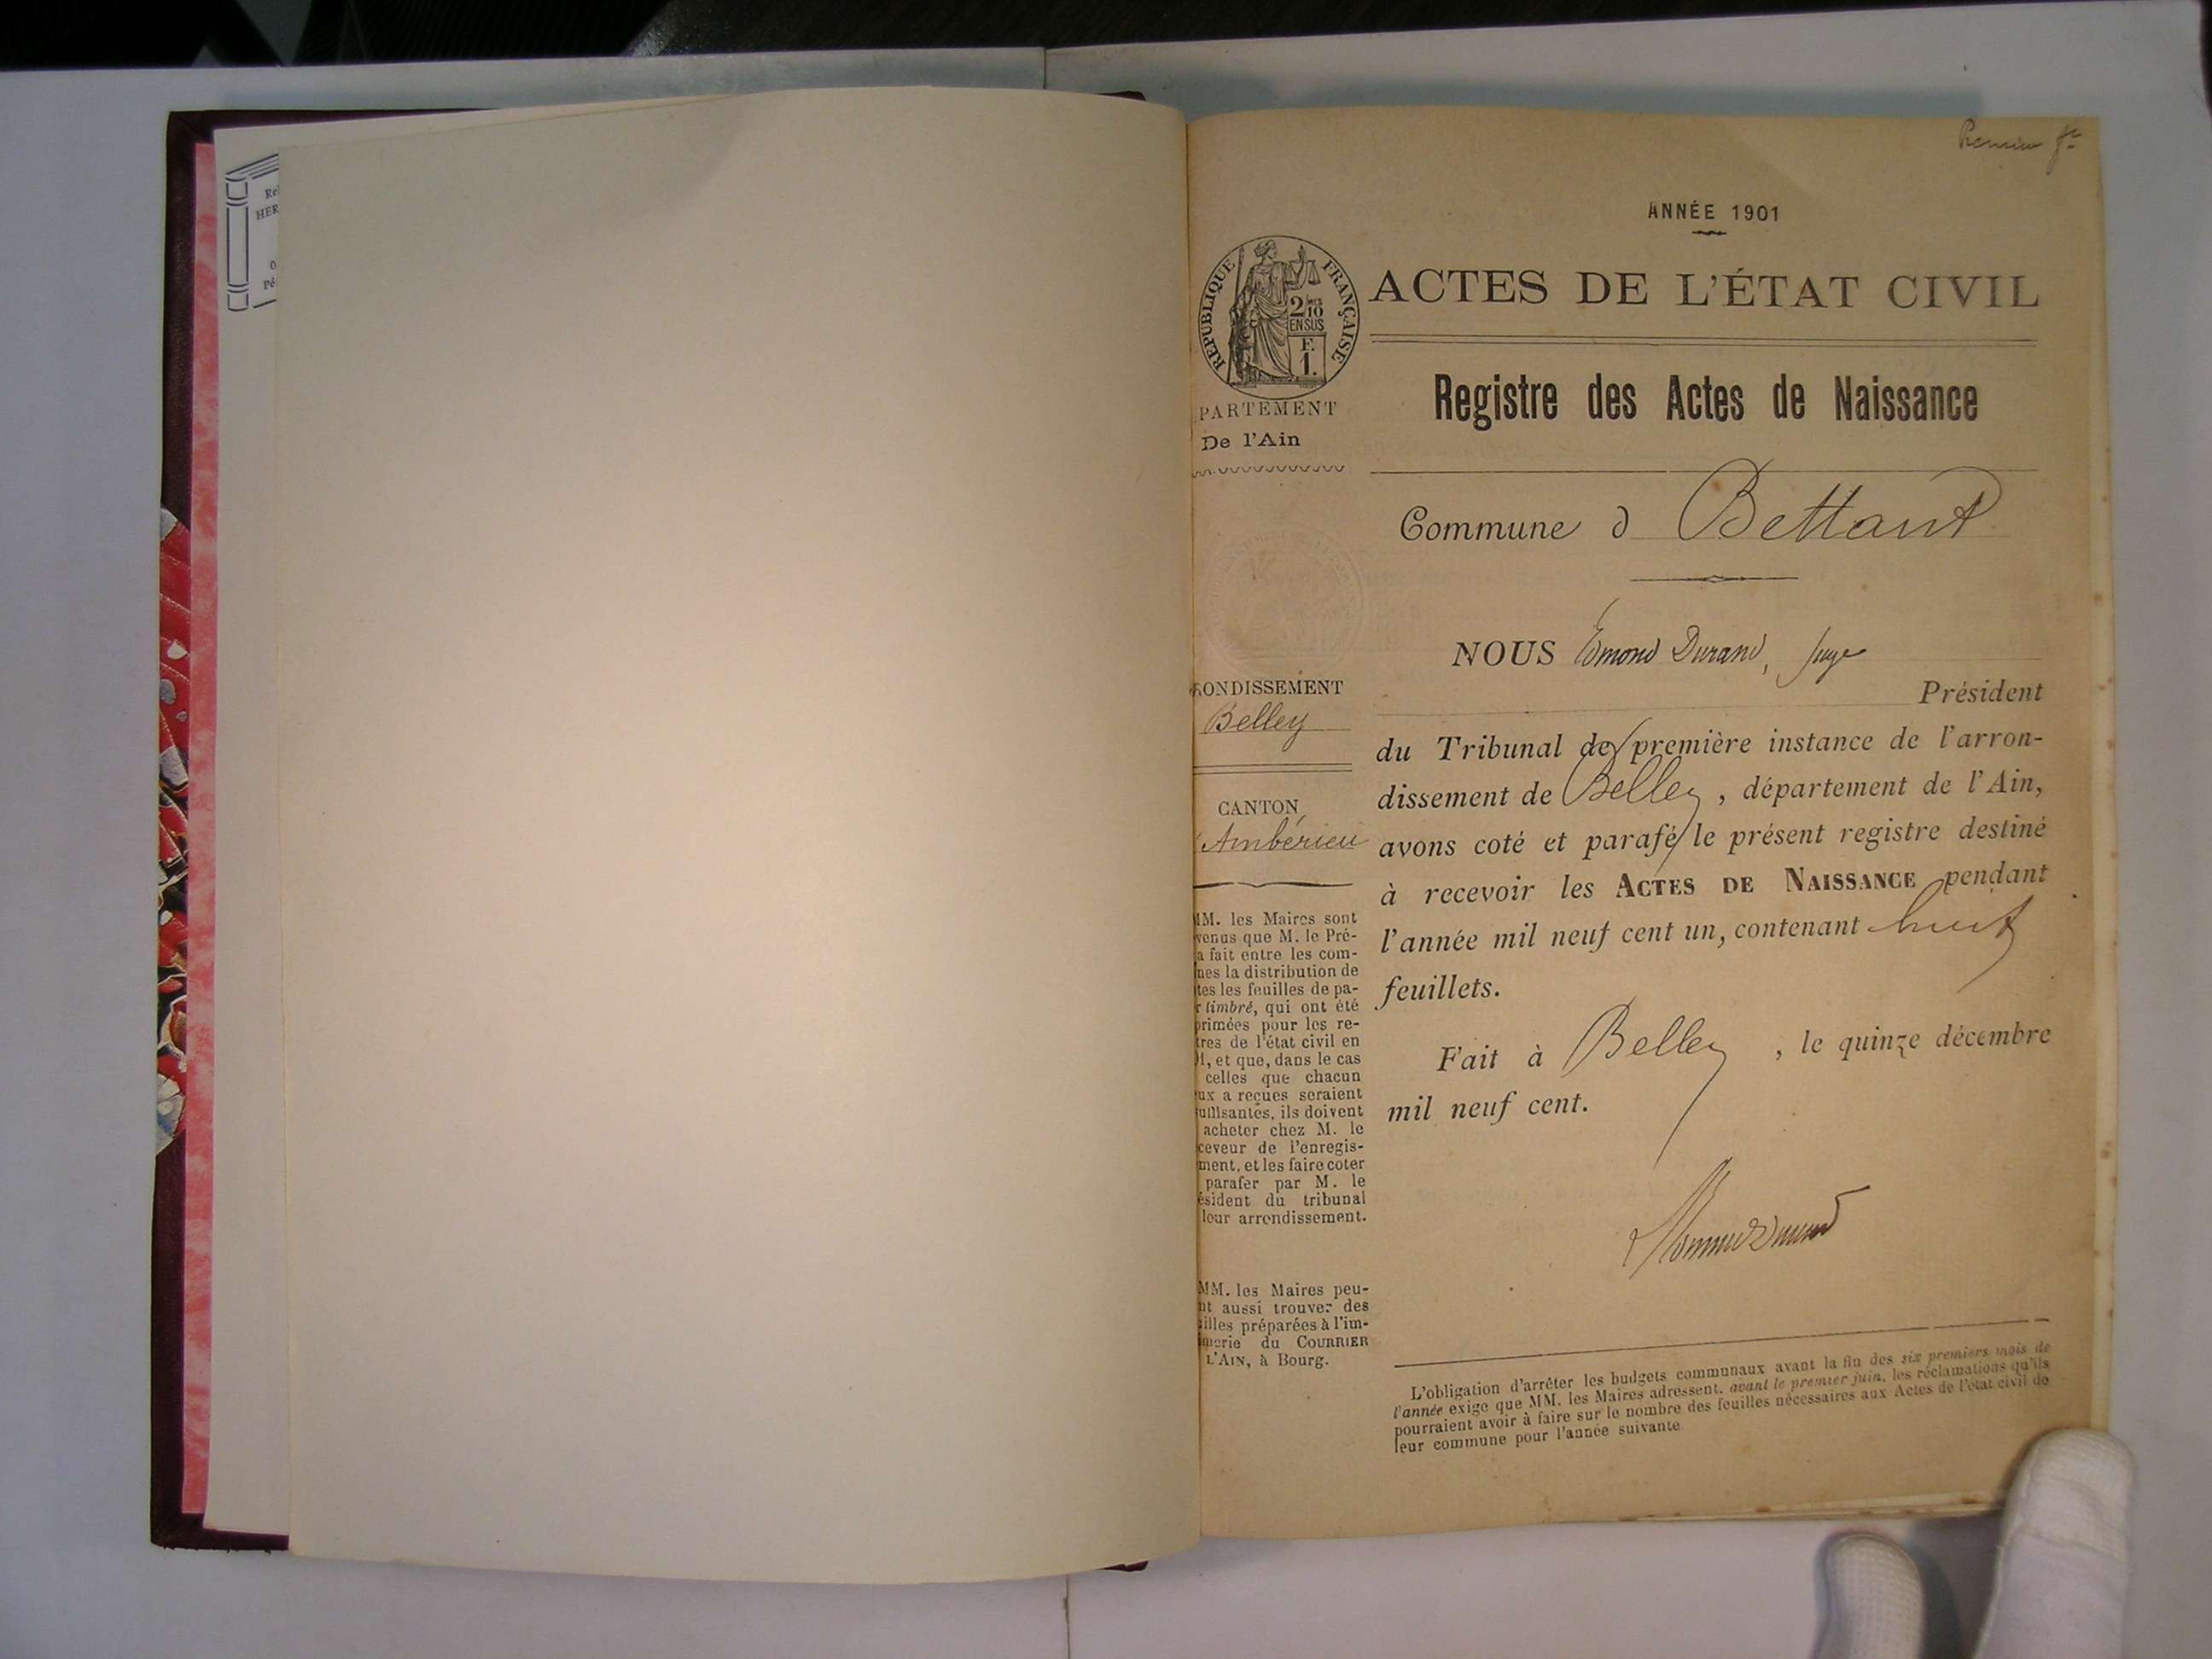 Premier
ANNÉE 1901
RÉPUBLIQUE FRANÇAISE
2/10
EN SUS
F.
1.
ACTES DE L'ÉTAT CIVIL
PARTEMENT
De l'Ain
Registre des Actes de Naissance
Commune d Bettant
NOUS Edmond Durand, juge
Président
du Tribunal de première instance de l'arron-
dissement de Belley, département de l'Ain,
avons coté et parafé le présent registre destiné
à recevoir les ACTES DE NAISSANCE pendant
l'année mil neuf cent un, contenant huit
feuillets.
Fait à Belley, le quinze décembre
mil neuf cent.
RONDISSEMENT
Belley
CANTON
Ambérieu
MM. les Maires sont
venus que M. le Pré-
a fait entre les com-
nes la distribution de
tes les feuilles de pa-
r timbré, qui ont été
primées pour les re-
tres de l'état civil en
1, et que, dans le cas
celles que chacun
ux a reçues seraient
uffisantes, ils doivent
acheter chez M. le
ceveur de l'enregis-
ment, et les faire coter
parafer par M. le
ésident du tribunal
leur arrondissement.
MM. les Maires peu-
nt aussi trouver des
illes préparées à l'im-
merie du COURRIER
L'AIN, à Bourg.
L'obligation d'arrêter les budgets communaux avant la fin des six premiers mois de
l'année exige que MM. les Maires adressent, avant le premier juin, les réclamations qu'ils
pourraient avoir à faire sur le nombre des feuilles nécessaires aux Actes de l'état civil de
leur commune pour l'année suivante
Re
HER
0
Pé